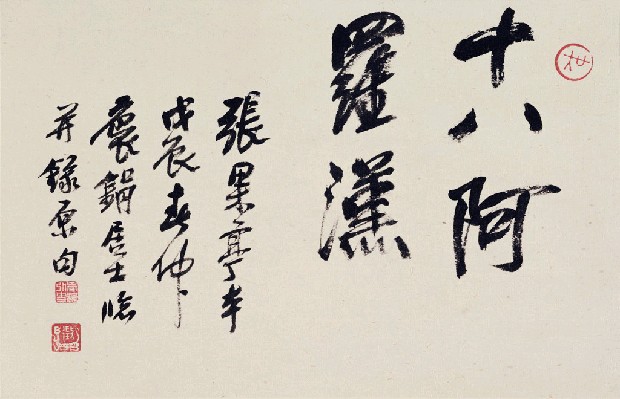 十八阿
羅漢
張果亭本
戊辰春仲
褱鋗居士臨
并錄原句